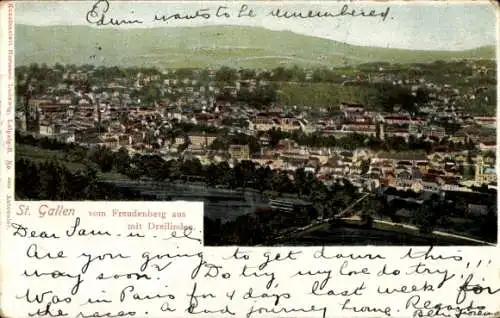 Edwin wants to be remembered.
Kunstanstalt Hermann Ludewig, Leipzig.
St. Gallen vom Freudenberg aus
mit Dreilinden.
Dear Sam-u-el.
Are you going to get down this
way soon? Do try my love do try!!!
Was in Paris for 4 days last week for
the races. A sad journey home. Regards